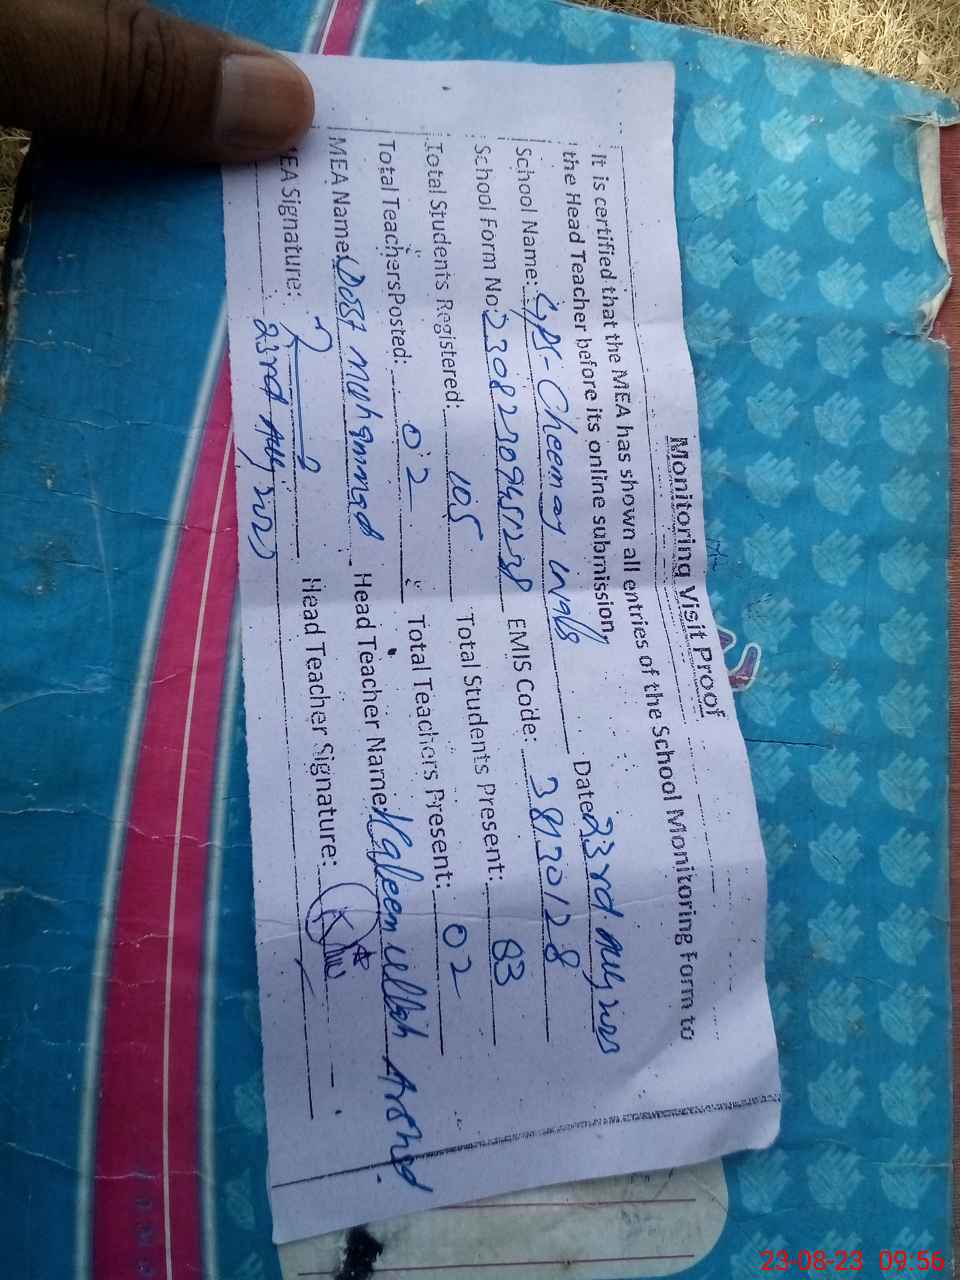 Monitoring Visit Proof
It is certified that the MEA has shown all entries of the School Monitoring Form to
the Head Teacher before its online submission.
School Name: GPS-Cheemay Wala Date: 23rd Aug 2023
School Form No: 23082309451238 EMIS Code: 38130128
Total Students Registered: 105 Total Students Present: 83
Total Teachers Posted: 02 Total Teachers Present: 02
MEA Name: Dost Muhammad Head Teacher Name: Kaleem ullah Arshd
EA Signature: Head Teacher Signature:
23rd Aug 2023
23-08-23 09:56